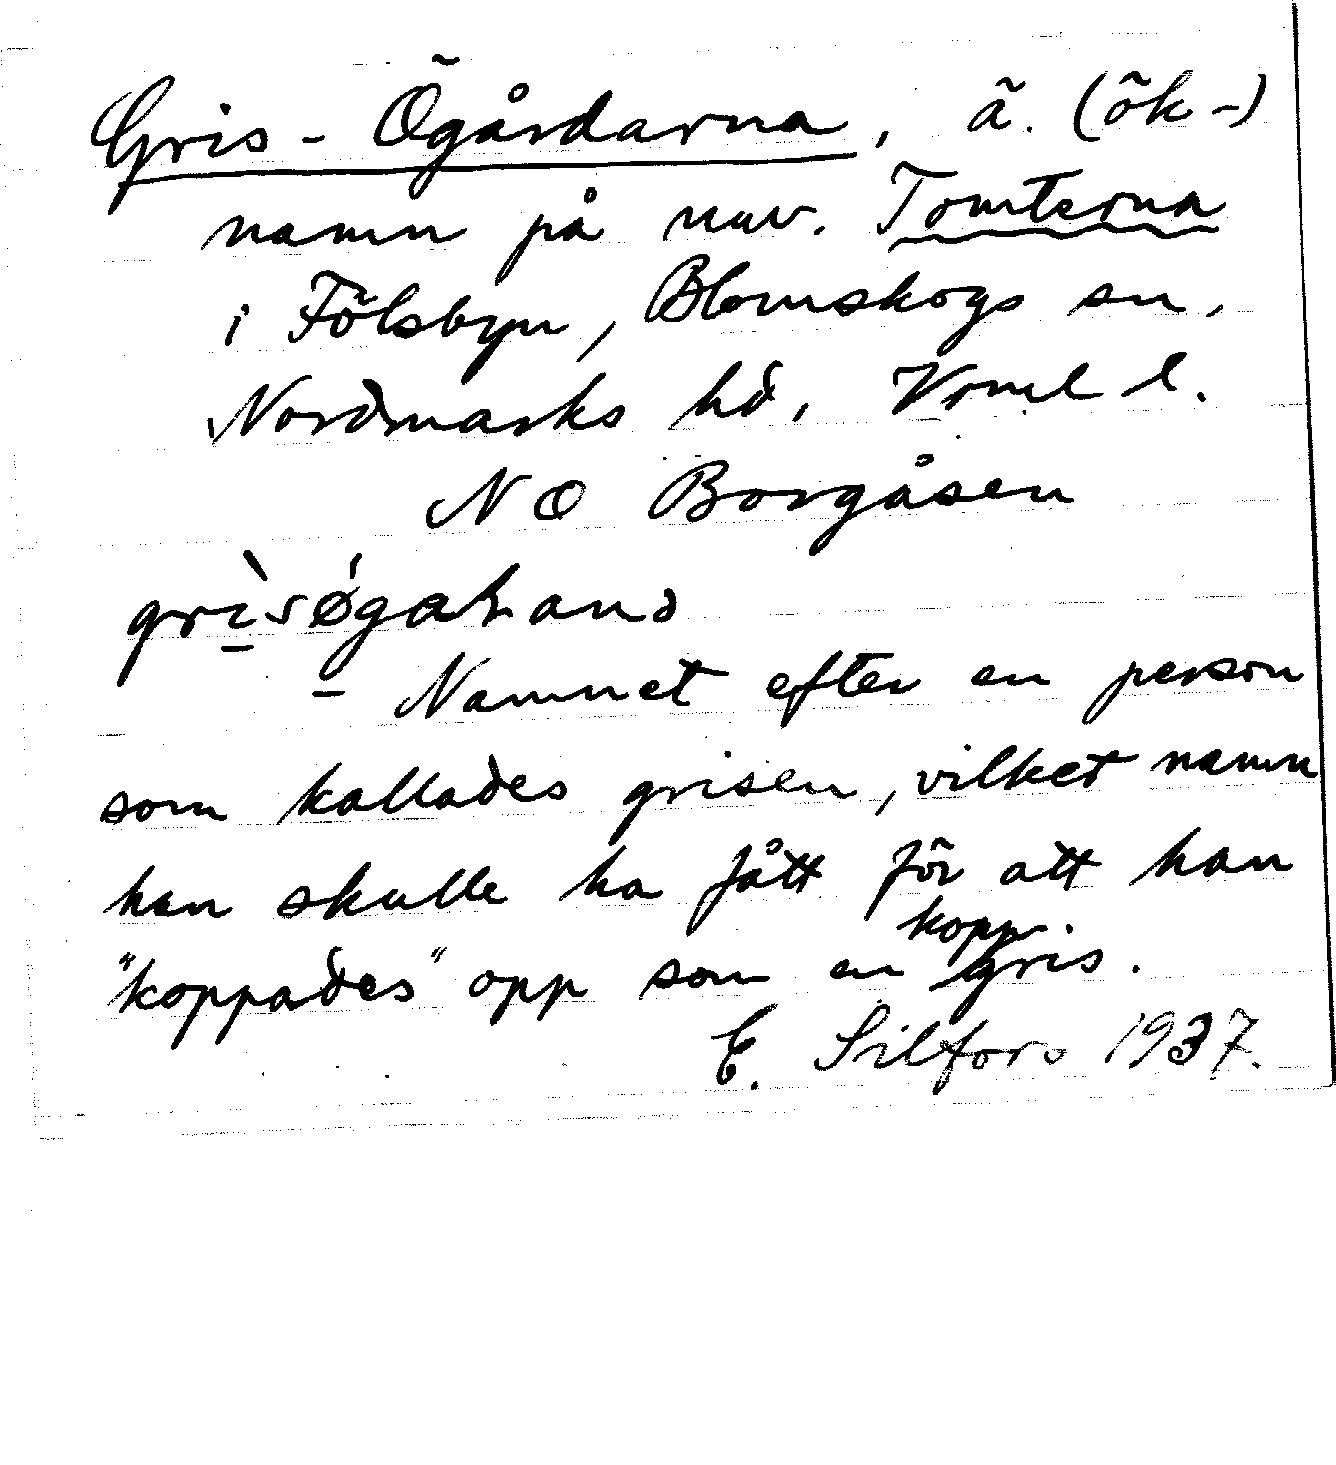 Gris-Ögårdarna, ä. (ök-)
namn på nuv. Tomterna
i Fölsbyn, Blomskogs sn,
Nordmarks hd, Vrml l.
NO Borgåsen
Namnet efter en person
som kallades grisen, vilket namn
han skulle ha fått för att han
"koppades" opp som en kopp-
gris.
E. Silfors 1937.